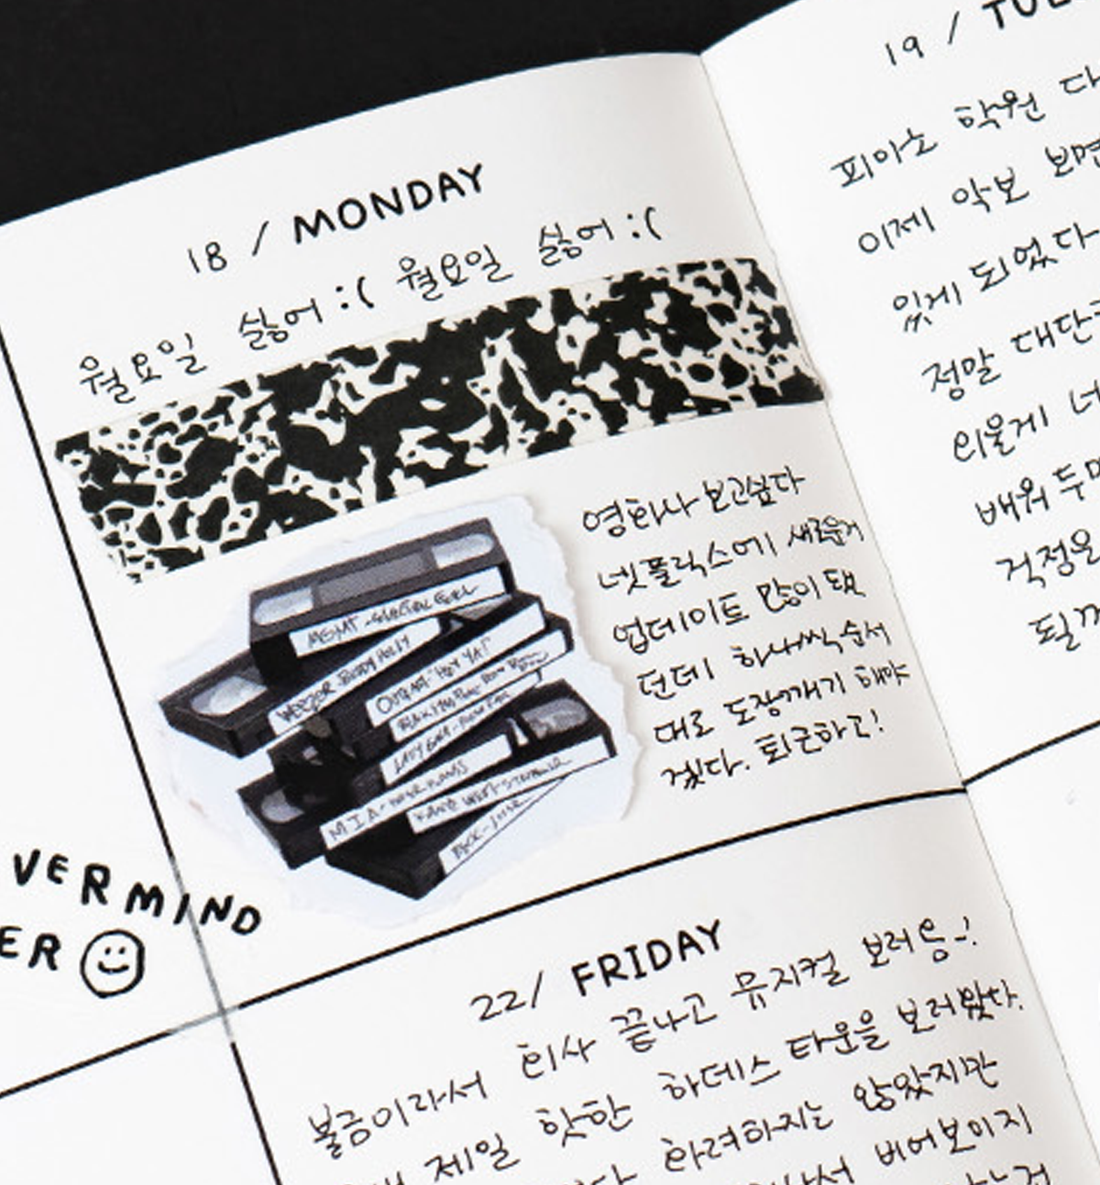 18 / MONDAY
월요일 싫어 :( 월요일 싫어 :(
영화나 보고싶다
넷플릭스에 새로운거
업데이트 많이 됐
던데 하나씩 순서
대로 도장깨기 해야
겠다. 퇴근하고!
MGMT -
WEEZER BUDDY HOLLY
OUTKAST "HEY YA!"
LADY GAGA -
M.I.A -
KANYE WEST STRONGER
BECK - LOSER
VERMIND
ER
19 /
피아노 학원
이제 악보 보면
있게 되었다
정말
외울게
배워
걱정은
22/ FRIDAY
회사 끝나고 뮤지컬 보러 옴-!
불금이라서
제일 핫한 하데스 타운을 보러왔다.
화려하지는 않았지만
비어보이지